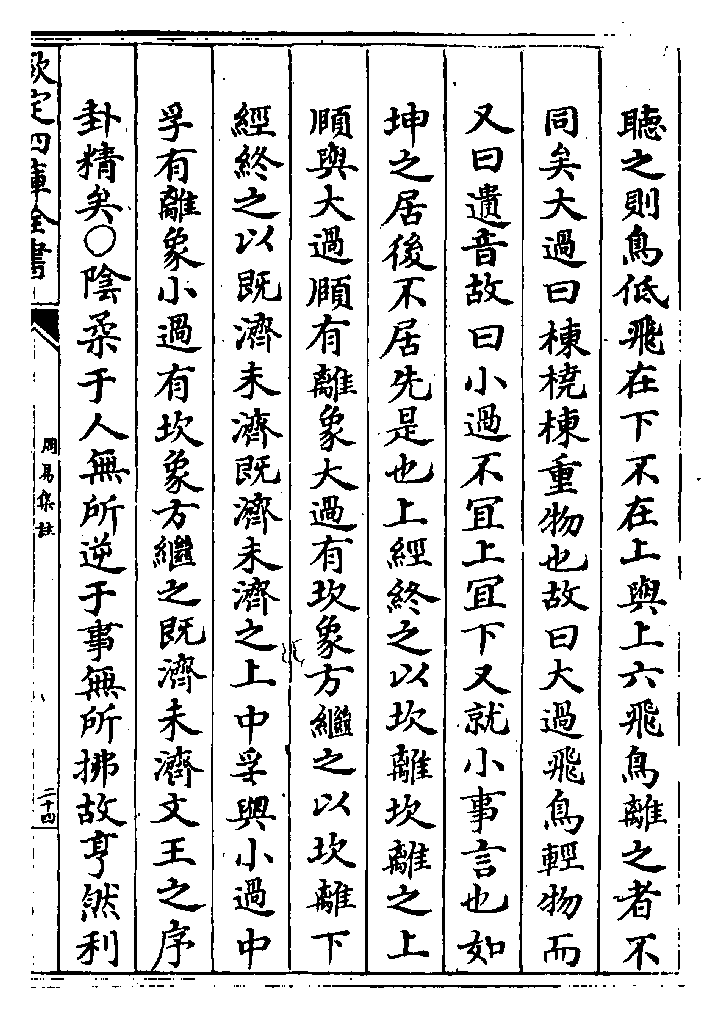 聴之則鳥低飛在下不在上與上六飛鳥離之者不
同矣大過曰棟橈棟重物也故曰大過飛鳥輕物而
又曰遺音故曰小過不宜上宜下又就小事言也如
坤之居後不居先是也上經終之以坎離坎離之上
頤與大過頤有離象大過有坎象方繼之以坎離下
經終之以既濟未濟既濟未濟之上中孚與小過中
孚有離象小過有坎象方繼之既濟未濟文王之序
卦精矣○陰柔于人無所逆于事無所拂故亨然利
欽定四庫全書
周易集註
二十四